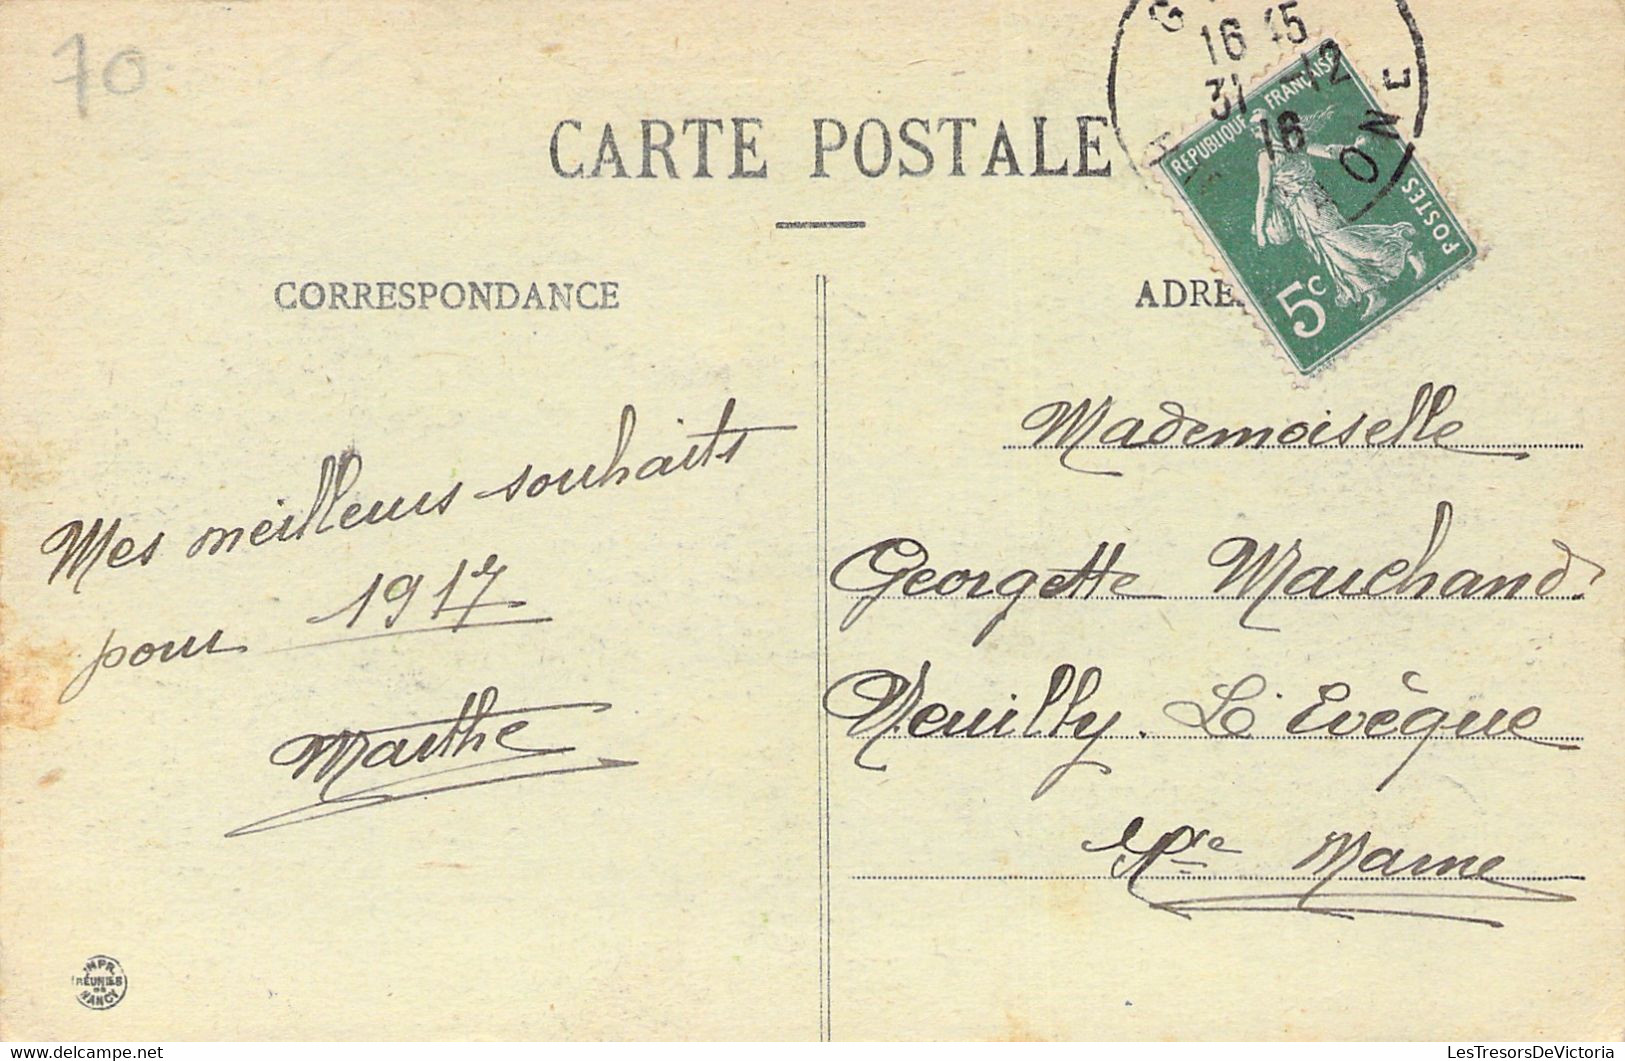 70
CARTE POSTALE
16 45
31 -12
16
REPUBLIQUE FRANÇAISE
POSTES
5c
CORRESPONDANCE
ADRE
Mes meilleurs souhaits
pour 1917
Marthe
Mademoiselle
Georgette Marchand
Neuilly. L'Evêque
Hte Marne
IMPR.
RÉUNIES
DE
NANCY
LesTresorsDeVictoria